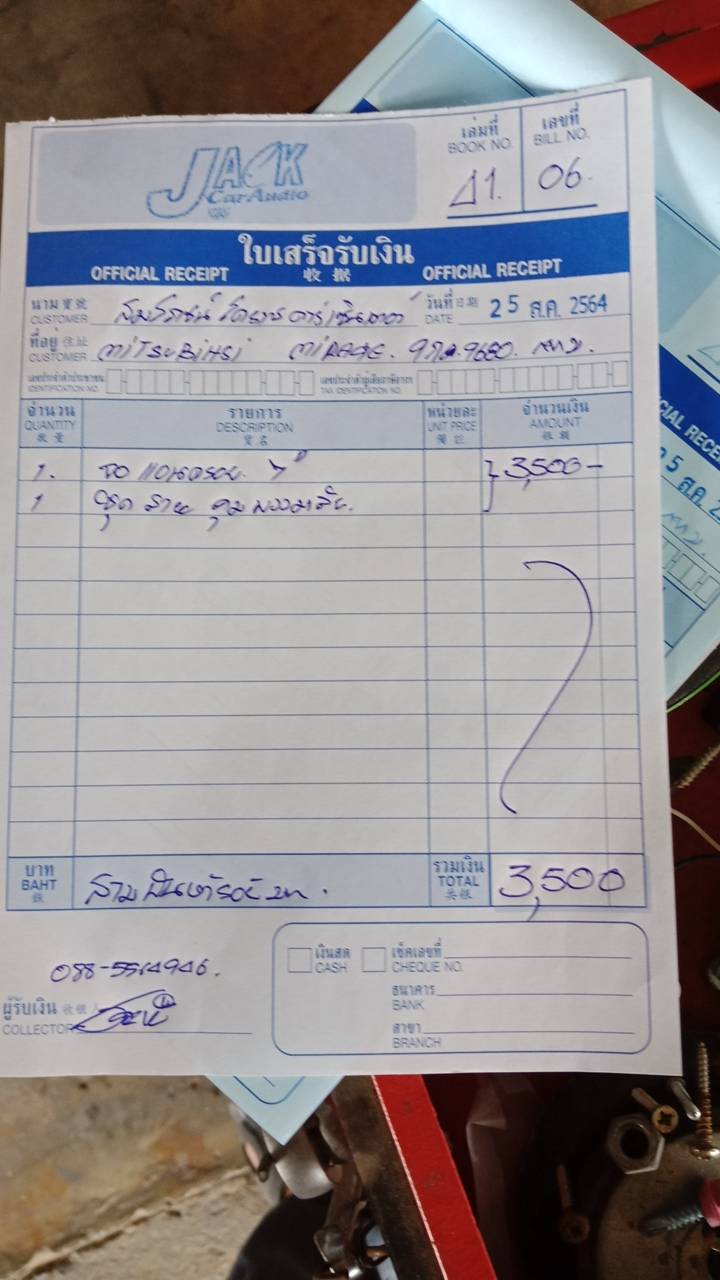 JACK
Car Audio
เล่มที่ เลขที่
BOOK NO. BILL NO.
11. 06.
ใบเสร็จรับเงิน
OFFICIAL RECEIPT 收 据 OFFICIAL RECEIPT
นาม 寶號 วันที่ 日期 25 ส.ค. 2564
CUSTOMER DATE
ที่อยู่ 住址
CUSTOMER MiTSuBiHSi MiRAGE.
เลขประจำตัวประชาชน เลขประจำตัวผู้เสียภาษีอากร
IDENTIFICATION NO. TAX IDENTIFICATION NO.
จำนวน รายการ หน่วยละ จำนวนเงิน
QUANTITY DESCRIPTION UNIT PRICE AMOUNT
数量 貨名
1. จอ 3,500-
1 ชุด สาย คุม พวงมาลัย.
บาท สามพันห้าร้อยบาท. รวมเงิน 3,500
BAHT TOTAL
088-5514946.
เงินสด เช็คเลขที่
CASH CHEQUE NO.
ธนาคาร
BANK
ผู้รับเงิน 收银人
COLLECTOR
สาขา
BRANCH
CIAL RECEIPT
25 ส.ค. 2